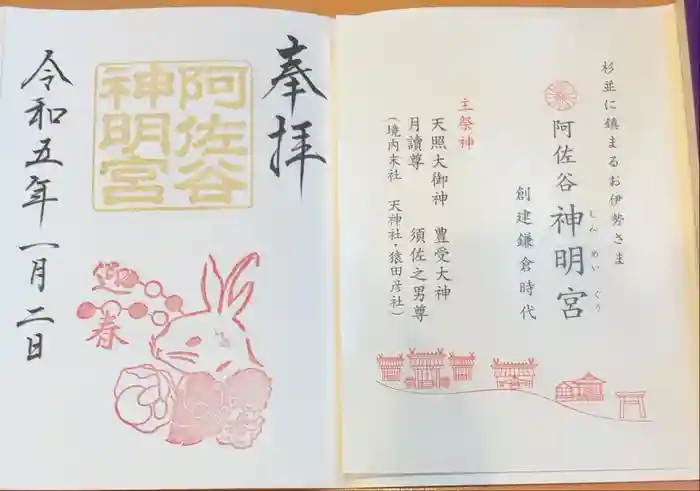 杉並に鎮まるお伊勢さま
阿佐谷 神明宮
しん めい ぐう
創建鎌倉時代
主祭神
天照大御神 豊受大神
月讀尊 須佐之男尊
(境内末社 天神社・猿田彦社)
奉拝
阿佐谷
神明宮
迎春
令和五年一月二日